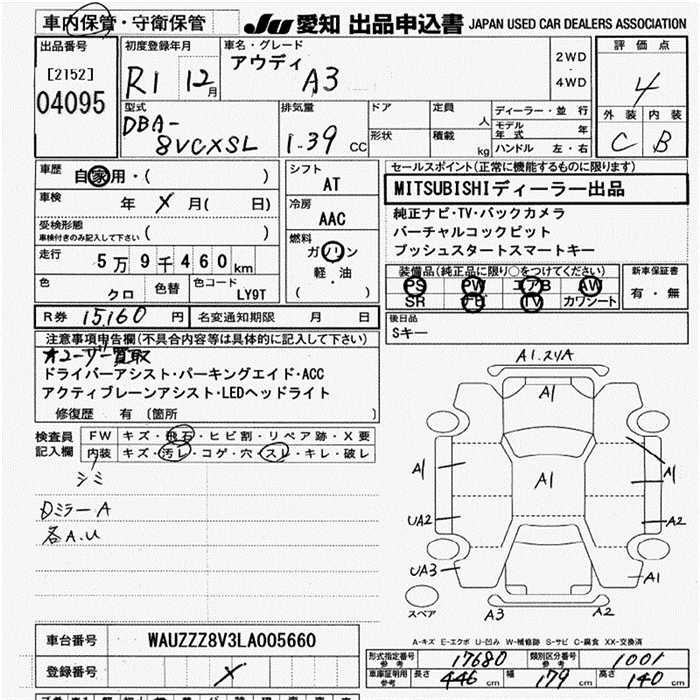 車内保管・守衛保管 JU 愛知 出品申込書 JAPAN USED CAR DEALERS ASSOCIATION
出品番号 初度登録年月 車名・グレード 評価点
[2152] R1 12月 アウディ A3 2WD・4WD 4
04095
型式 排気量 ドア 定員 人 ディーラー・並行 外装 内装
DBA- 形状 積載 kg モデル年式 年 C B
8VCXSL 1.39 CC ハンドル 左・右
車歴 自家用・( ) シフト セールスポイント(正常に機能するものに限ります)
AT MITSUBISHIディーラー出品
車検 年 X 月( 日) 冷房 純正ナビ・TV・バックカメラ
受検形態 AAC バーチャルコックピット
車検付きのみ記入して下さい ( ) 燃料 プッシュスタートスマートキー
走行 5万9千460km ガソリン 装備品(純正品に限り○をつけてください) 新車保証書
軽・油 PS PW エアB AW 有・無
色 クロ 色替 色コード LY9T ( ) SR ナビ TV カワシート
R券 15,160 円 名変通知期限 月 日 後日品
Sキー
注意事項申告欄(不具合内容等は具体的に記入して下さい)
オユーザー買取
ドライバーアシスト・パーキングエイド・ACC
アクティブレーンアシスト・LEDヘッドライト
修復歴 有 (箇所 )
検査員 FW キズ・飛石・ヒビ割・リペア跡・X要
記入欄 内装 キズ・汚レ・コゲ・穴・スレ・キレ・破レ
シミ
DミラーA
各A.U
A1.ヱ4A
A1
A1 A1 A1
UA2 A2
UA3 A1
スペア A3 A2
A-キズ E-エクボ U-凹み W-補修跡 S-サビ C-腐食 XX-交換済
車台番号 WAUZZZ8V3LA005660
登録番号 X
形式指定番号 参考 17680 類別区分番号 参考 1001
車庫証明用 参考 長さ 446 cm 幅 179 cm 高さ 140 cm